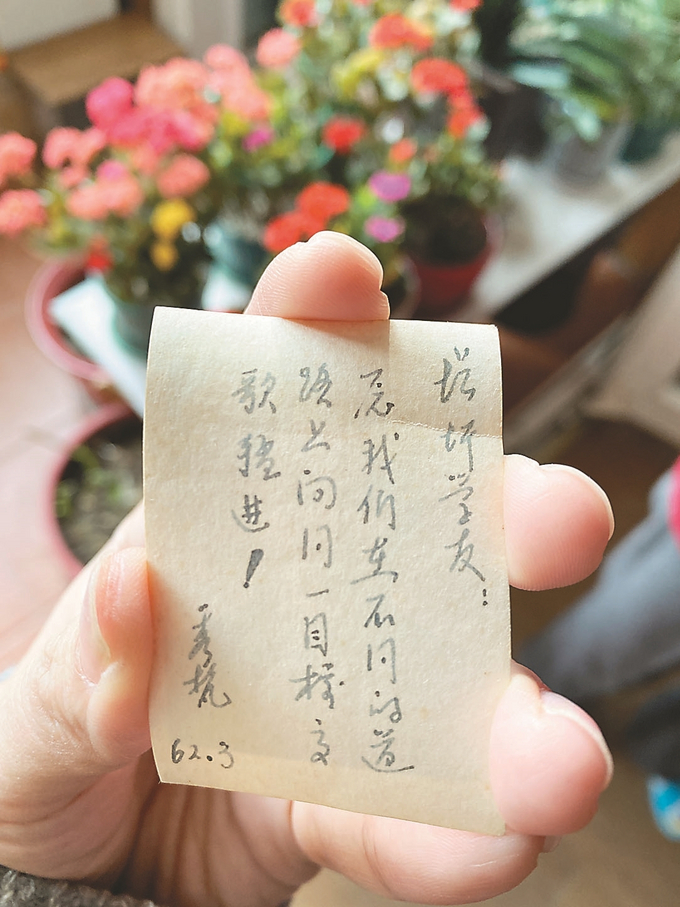 学友：
愿我们在不同的道
路上向同一目标高
歌猛进！
秀
62.3